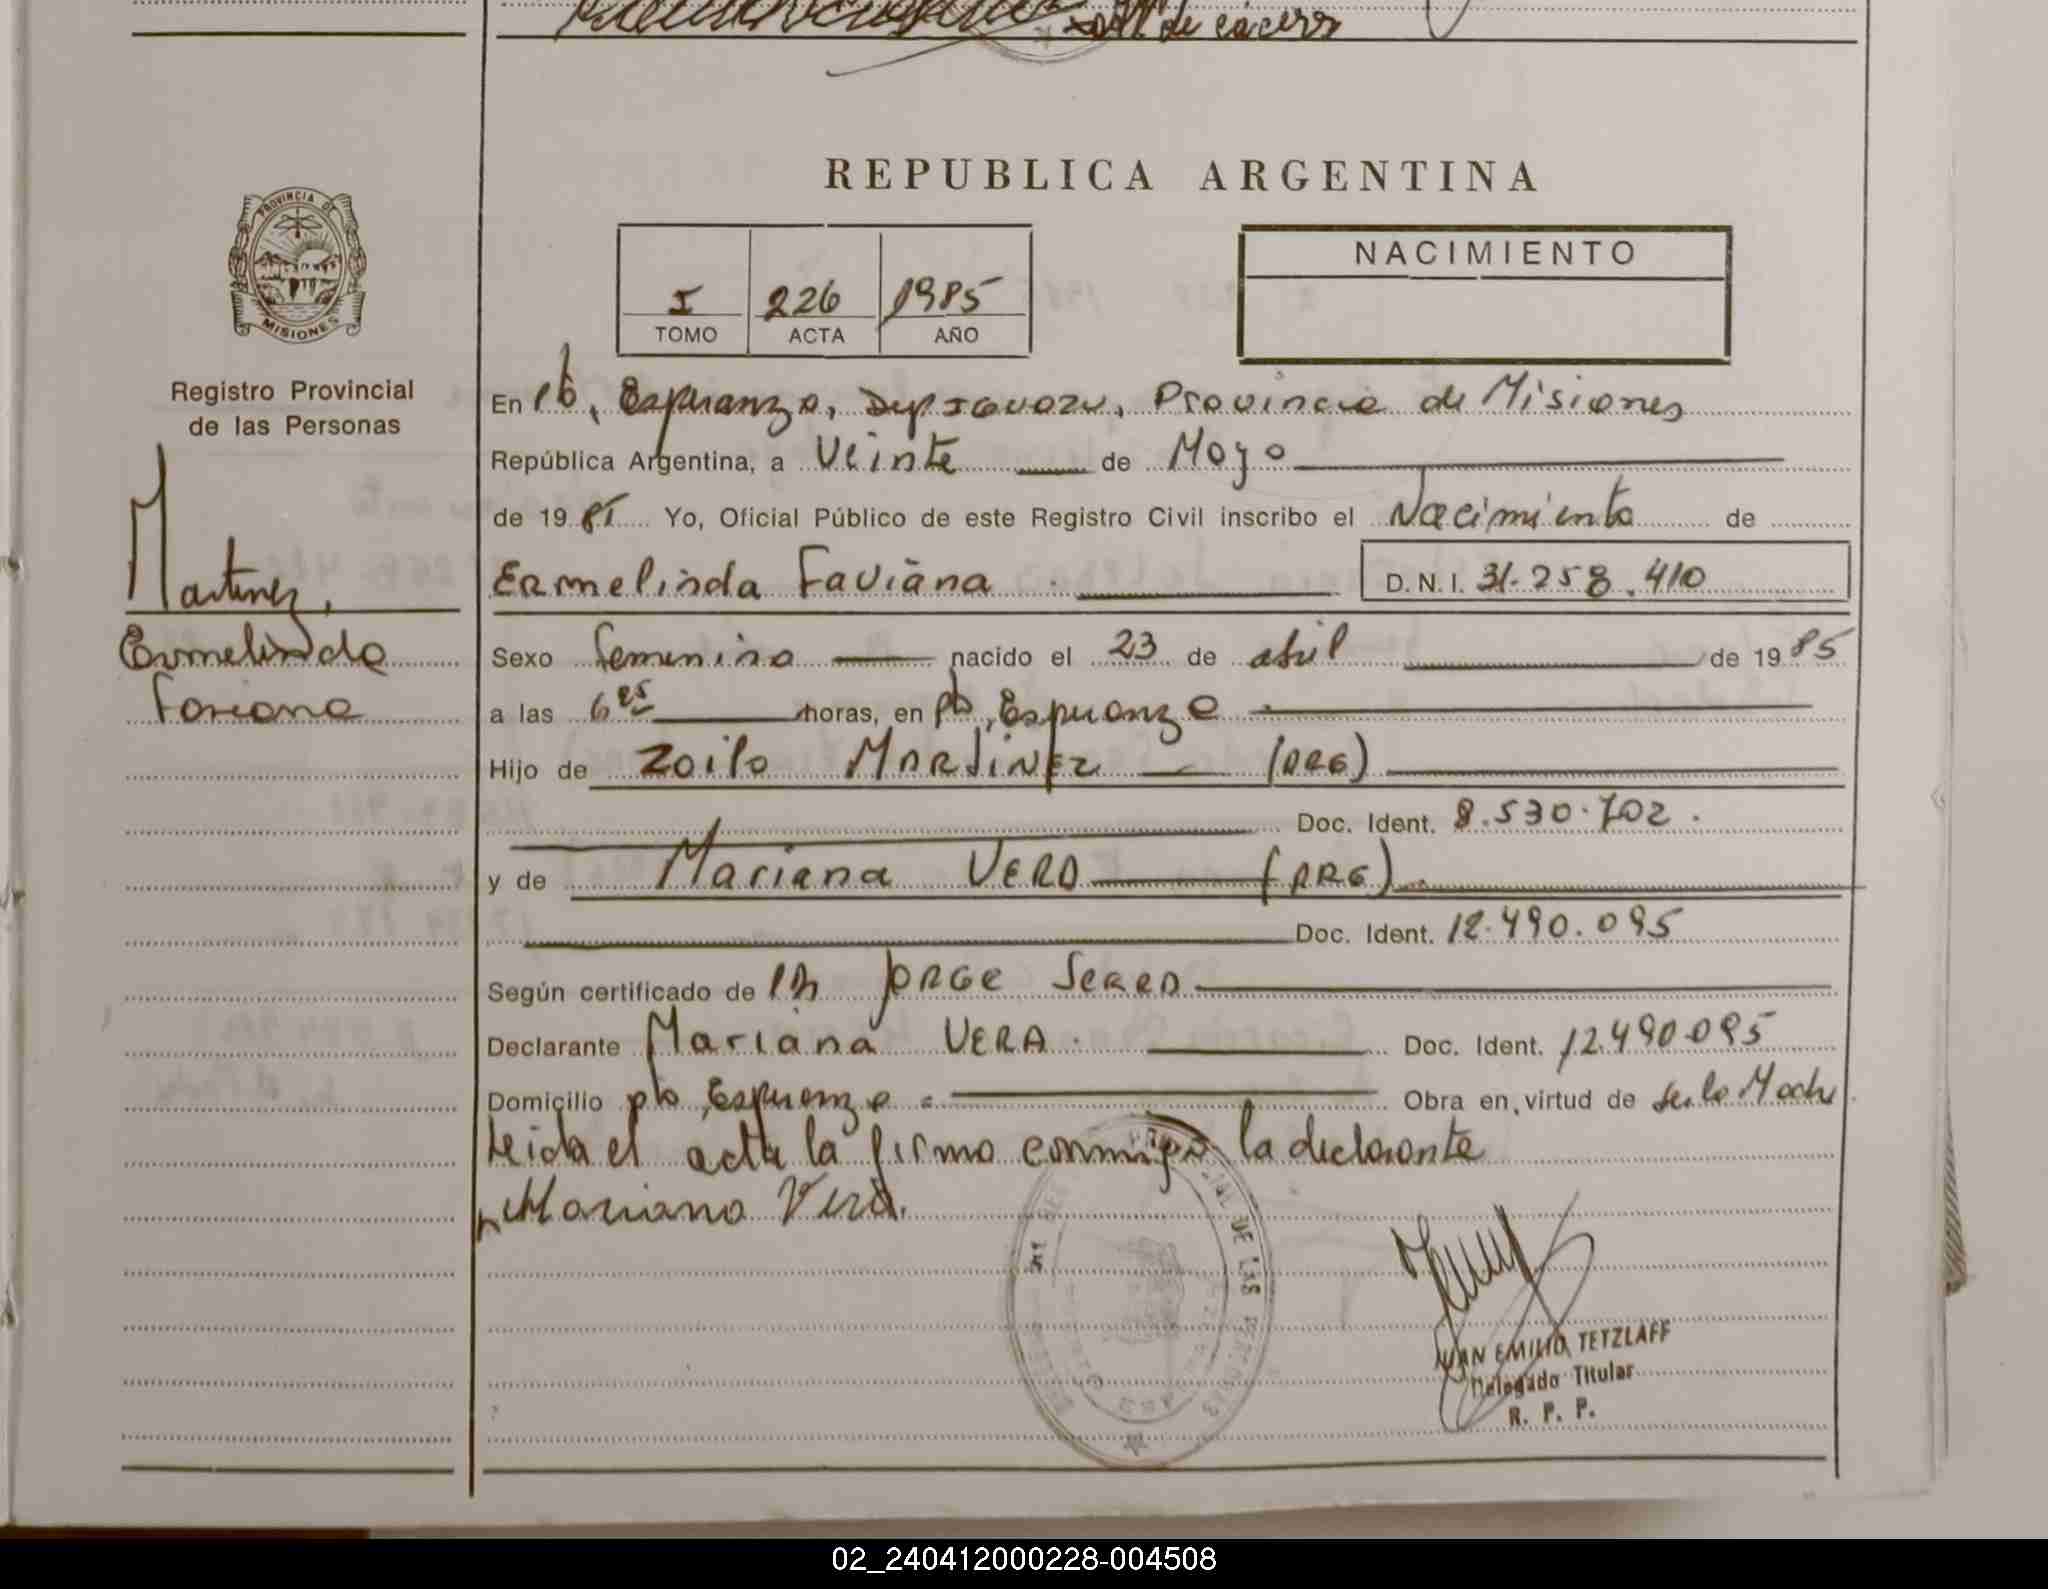 de caceres
REPUBLICA ARGENTINA
PROVINCIA DE
MISIONES
Registro Provincial
de las Personas
I 226 1985
TOMO ACTA AÑO
NACIMIENTO
Martinez,
Ermelinda
Faviana
En Pto, Esperanza, Dep Iguazu, Provincia de Misiones
República Argentina, a Veinte de Mayo
de 19 85 Yo, Oficial Público de este Registro Civil inscribo el Nacimiento de
Ermelinda Faviana D.N.I. 31.258.410
Sexo femenino nacido el 23 de abril de 19 85
a las 6 25 horas, en Pto, Esperanza
Hijo de Zoilo MARTINEZ (ARG)
Doc. Ident. 8.530.702.
y de Mariana VERA (ARG)
Doc. Ident. 12.490.095
Según certificado de JORGE
Declarante Mariana VERA. Doc. Ident. 12.490.095
Domicilio pto, Esperanza = Obra en virtud de ser la Madre
leida el acta la firma conmigo la declarante
Mariana Vera.
JUAN EMILIO TETZLAFF
Delegado Titular
R. P. P.
02_240412000228-004508